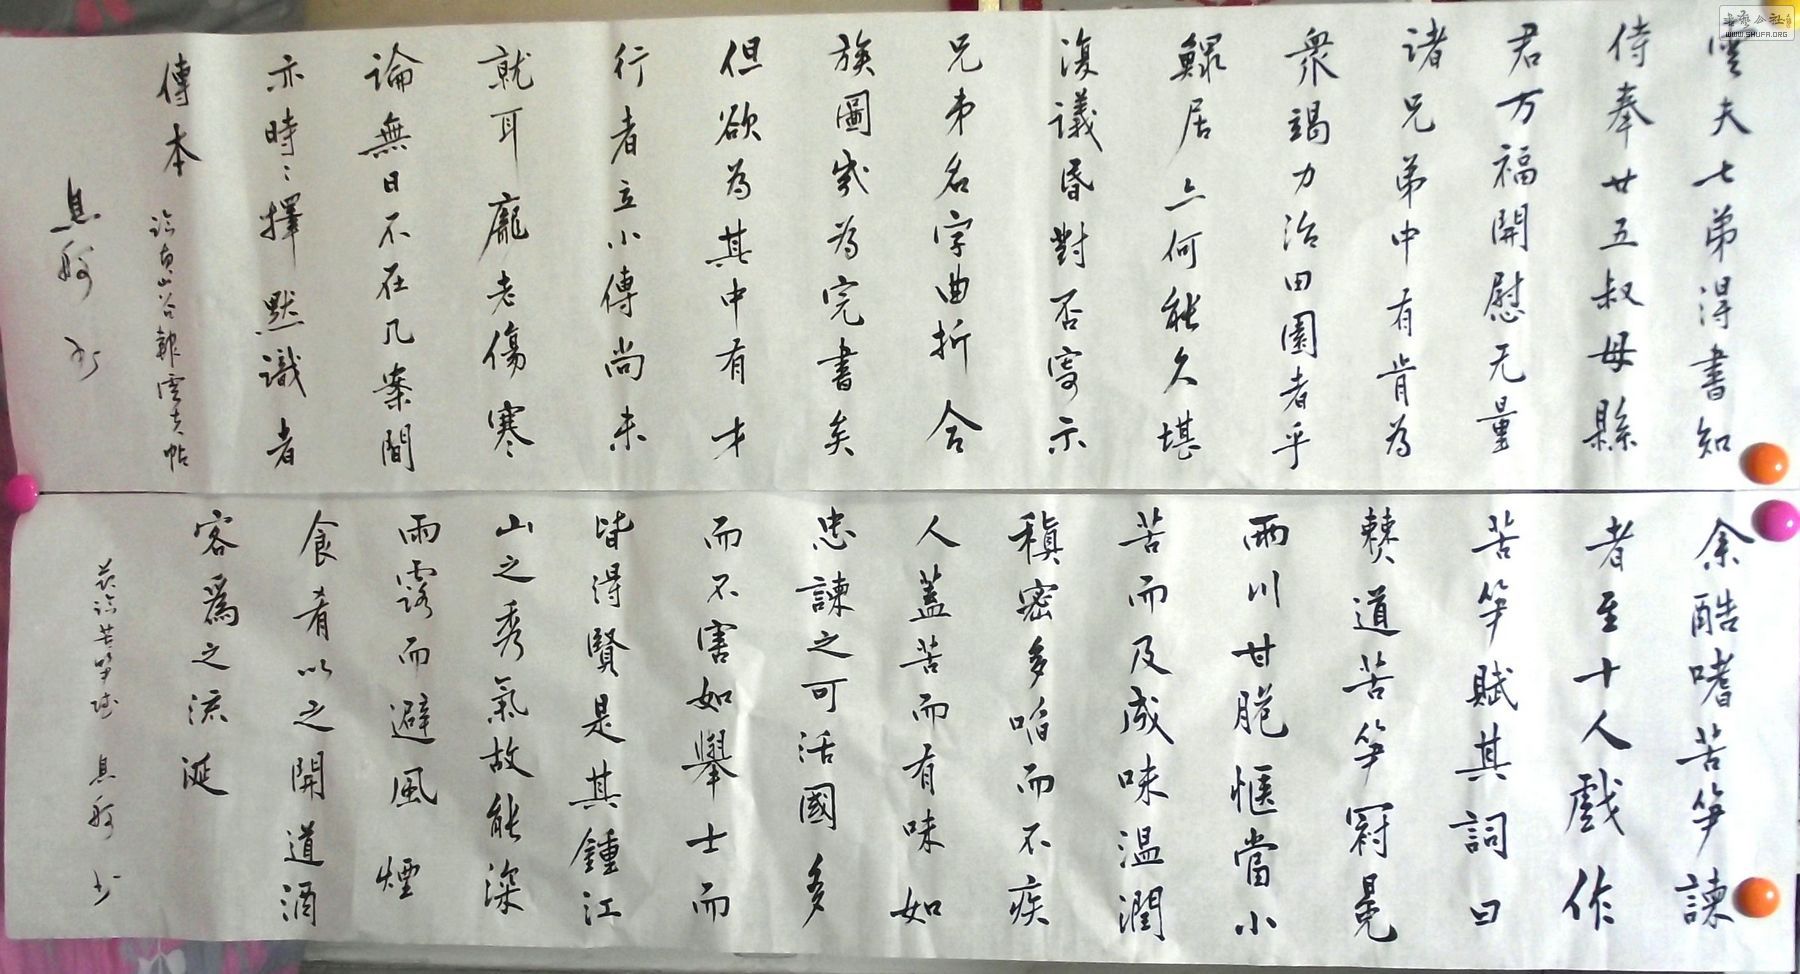 雲夫七弟得書知
侍奉廿五叔母縣
君万福開慰无量
諸兄弟中有肯為
衆竭力治田園者乎
鰥居亠何能久堪
復議昏對否寄示
兄弟名字曲折合
族圖嵗為完書矣
但欲為其中有才
行者立小傳尚未
就耳龐老傷寒
論無日不在几案間
亦時〻擇默識者
傳本
臨黄山谷報雲夫帖
息
余酷嗜苦笋諫
者至十人戲作
苦笋賦其詞曰
僰道苦笋冠冕
兩川甘脆愜當小
苦而反成味温潤
稹密多啗而不疾
人蓋苦而有味如
忠諫之可活國多
而不害如舉士而
皆得賢是其鍾江
山之秀氣故能深
雨露而避風煙
食肴以之開道酒
客爲之流涎
臨苦笋賦 息
書藝公社
WWW.SHUFA.ORG